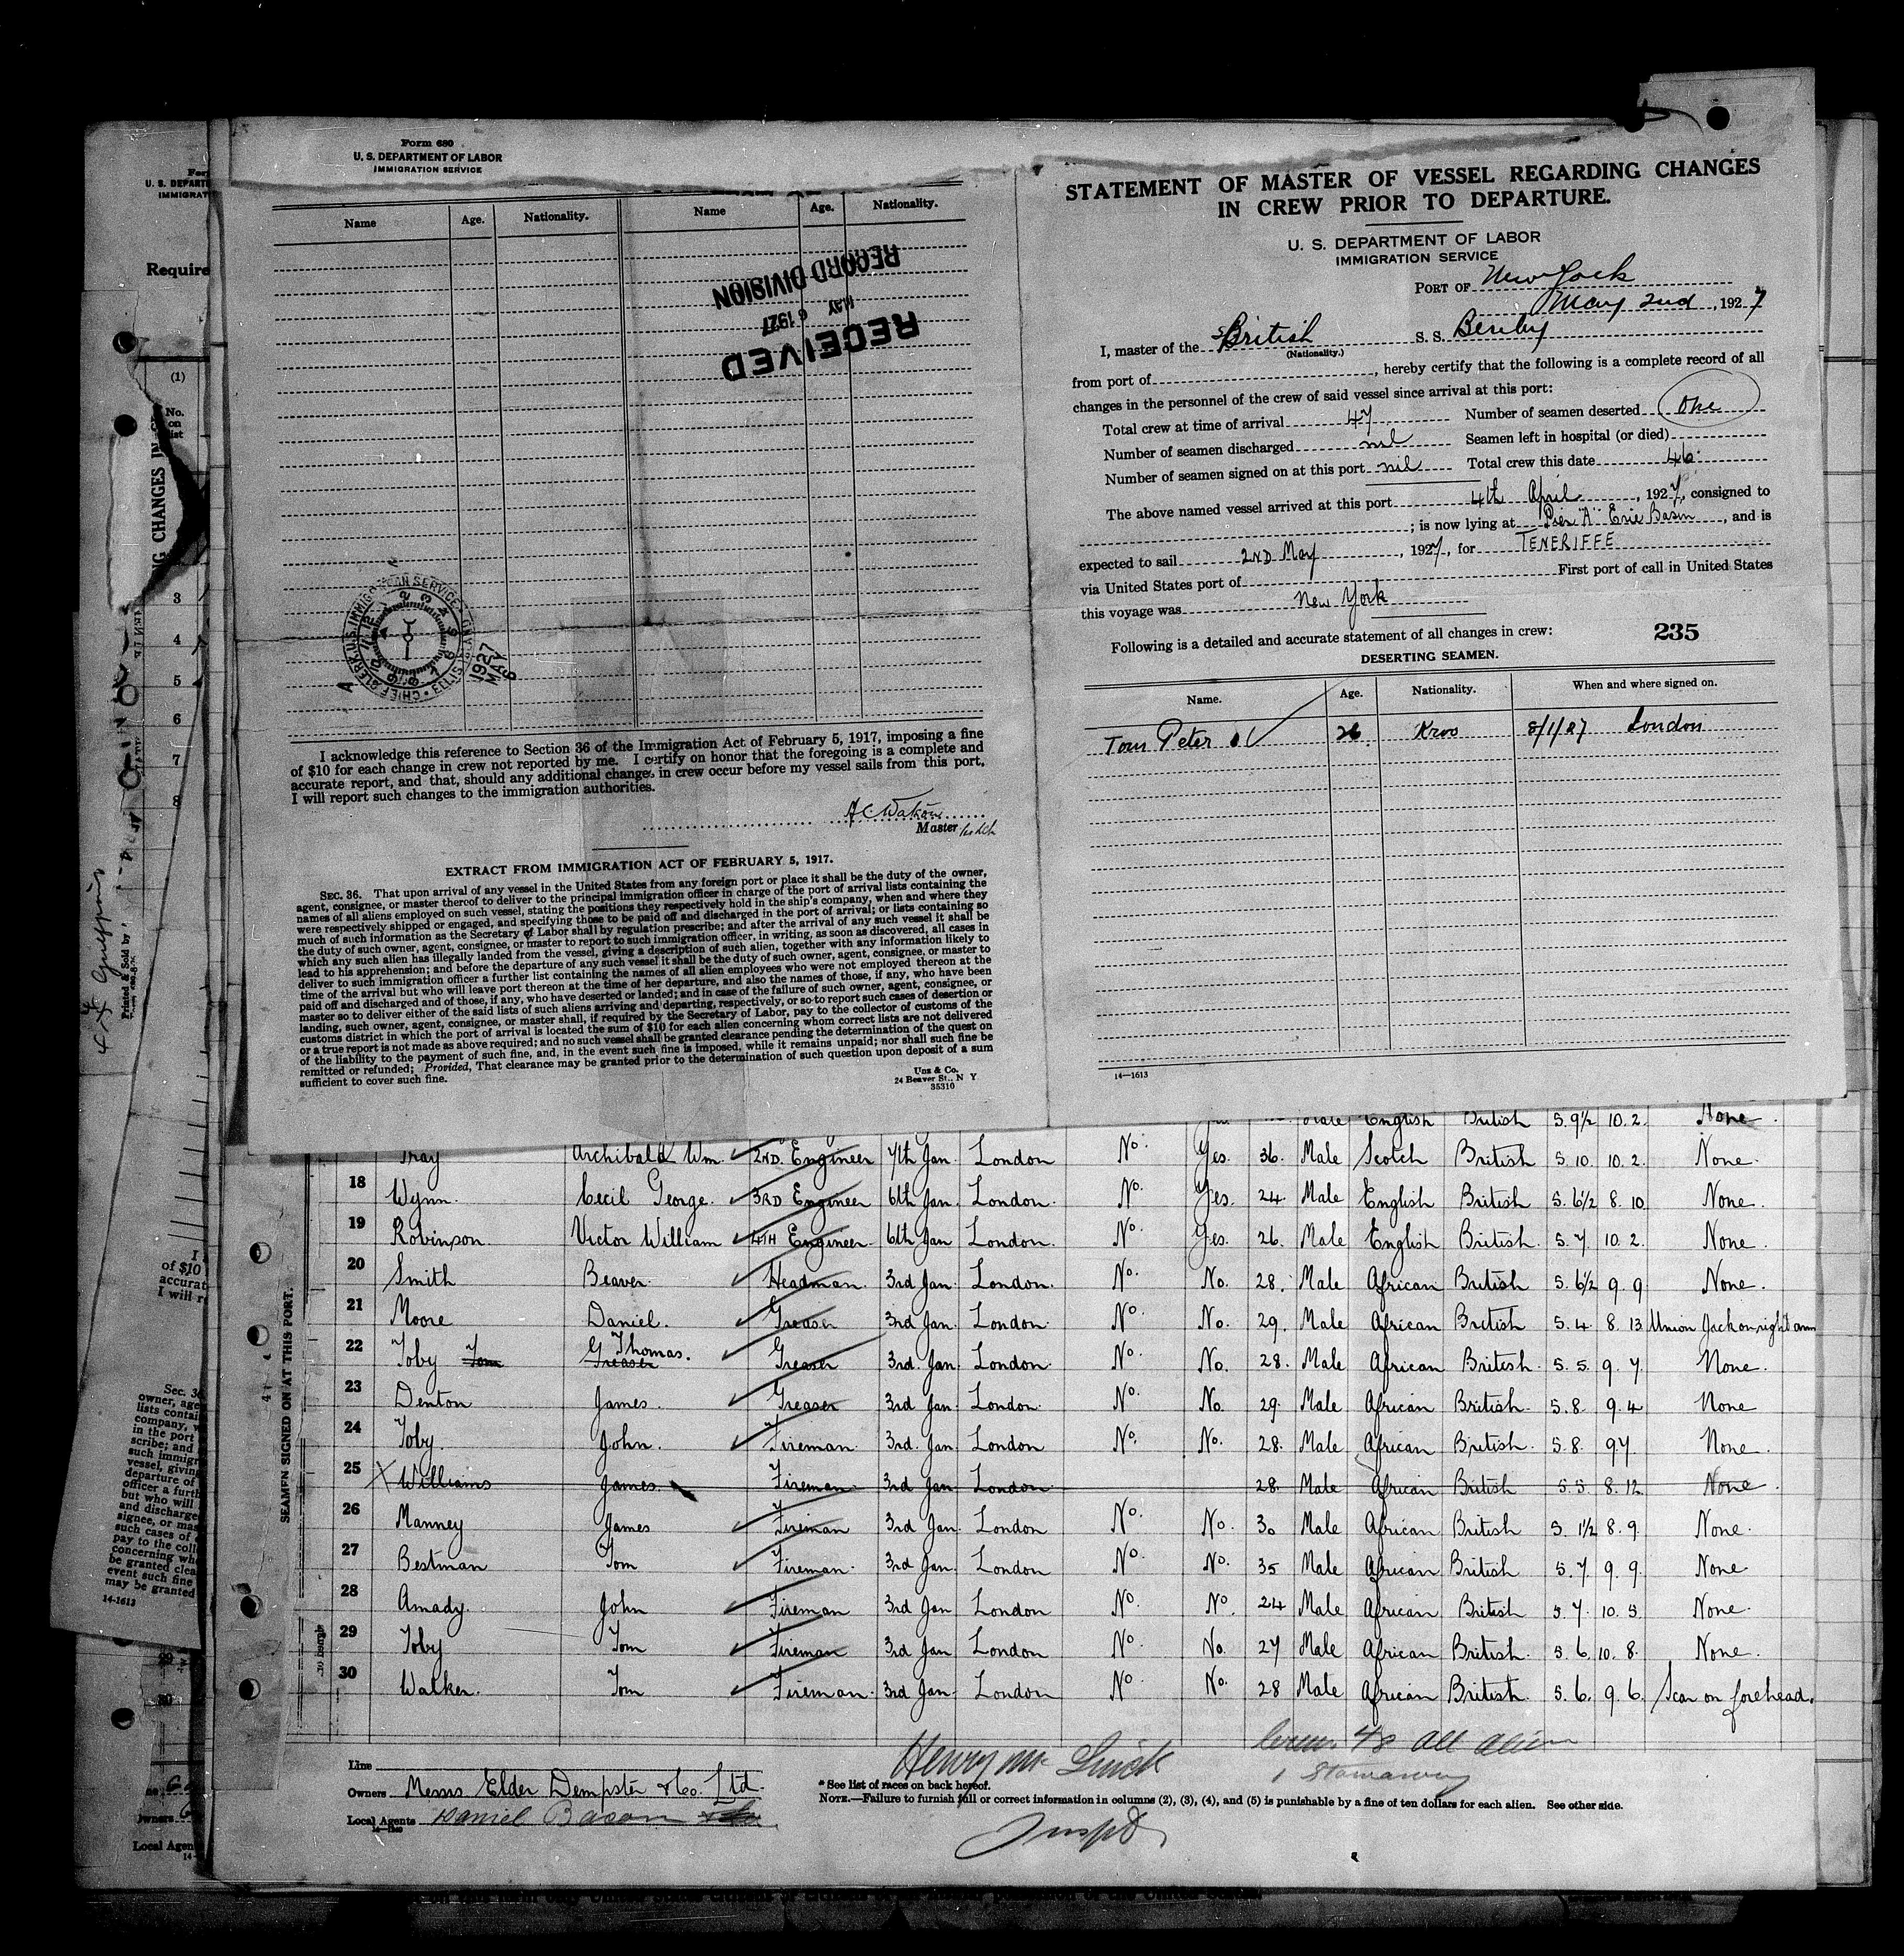 Form 680
U. S. DEPARTMENT OF LABOR
IMMIGRATION SERVICE
Name Age. Nationality. Name Age. Nationality.
RECEIVED
MAY 6 1927
RECORD DIVISION
1927
MAY
6
I acknowledge this reference to Section 36 of the Immigration Act of February 5, 1917, imposing a fine
of $10 for each change in crew not reported by me. I certify on honor that the foregoing is a complete and
accurate report, and that, should any additional changes in crew occur before my vessel sails from this port,
I will report such changes to the immigration authorities.
Master
EXTRACT FROM IMMIGRATION ACT OF FEBRUARY 5, 1917.
SEC. 36. That upon arrival of any vessel in the United States from any foreign port or place it shall be the duty of the owner,
agent, consignee, or master thereof to deliver to the principal immigration officer in charge of the port of arrival lists containing the
names of all aliens employed on such vessel, stating the positions they respectively hold in the ship's company, when and where they
were respectively shipped or engaged, and specifying those to be paid off and discharged in the port of arrival; or lists containing so
much of such information as the Secretary of Labor shall by regulation prescribe; and after the arrival of any such vessel it shall be
the duty of such owner, agent, consignee, or master to report to such immigration officer, in writing, as soon as discovered, all cases in
which any such alien has illegally landed from the vessel, giving a description of such alien, together with any information likely to
lead to his apprehension; and before the departure of any such vessel it shall be the duty of such owner, agent, consignee, or master to
deliver to such immigration officer a further list containing the names of all alien employees who were not employed thereon at the
time of the arrival but who will leave port thereon at the time of her departure, and also the names of those, if any, who have been
paid off and discharged and of those, if any, who have deserted or landed; and in case of the failure of such owner, agent, consignee, or
master so to deliver either of the said lists of such aliens arriving and departing, respectively, or so to report such cases of desertion or
landing, such owner, agent, consignee, or master shall, if required by the Secretary of Labor, pay to the collector of customs of the
customs district in which the port of arrival is located the sum of $10 for each alien concerning whom correct lists are not delivered
or a true report is not made as above required; and no such vessel shall be granted clearance pending the determination of the quest on
of the liability to the payment of such fine, and, in the event such fine is imposed, while it remains unpaid; nor shall such fine be
remitted or refunded; Provided, That clearance may be granted prior to the determination of such question upon deposit of a sum
sufficient to cover such fine.
Unz & Co.
24 Beaver St., N Y
35310
STATEMENT OF MASTER OF VESSEL REGARDING CHANGES
IN CREW PRIOR TO DEPARTURE.
U. S. DEPARTMENT OF LABOR
IMMIGRATION SERVICE
PORT OF New York
May 2nd, 1927
I, master of the British S. S. Benby
(Nationality.)
from port of , hereby certify that the following is a complete record of all
changes in the personnel of the crew of said vessel since arrival at this port:
Total crew at time of arrival 47 Number of seamen deserted One
Number of seamen discharged nil Seamen left in hospital (or died)
Number of seamen signed on at this port nil Total crew this date 46
The above named vessel arrived at this port 4th April, 1927, consigned to
; is now lying at Pier "A" Erie Basin, and is
expected to sail 2ND May, 1927, for TENERIFFE
via United States port of First port of call in United States
this voyage was New York
Following is a detailed and accurate statement of all changes in crew: 235
DESERTING SEAMEN.
Name. Age. Nationality. When and where signed on.
Tom Peter 26 Kroo 8/1/27 London
14—1613
English British 5. 9½ 10. 2. None
Archibald Wm. 2ND Engineer 7th Jan. London No. Yes. 36. Male Scotch British 5. 10. 10. 2. None.
18 Wynn. Cecil George. 3RD Engineer 6th Jan. London. No. Yes. 24. Male English British 5. 6½ 8. 10. None.
19 Robinson. Victor William 4TH Engineer. 6th Jan London. No. Yes. 26. Male English British. 5. 7. 10. 2. None.
20 Smith Beaver. Headman. 3rd Jan. London. No. No. 28. Male African British. 5. 6½ 9. 9. None.
21 Moore Daniel. Greaser 3rd Jan. London. No. No. 29. Male African British 5. 4. 8. 13 Union Jack on right arm
22 Toby Tom Greaser Thomas. Greaser 3rd. Jan. London. No. No. 28. Male African British 5. 5. 9. 7. None.
23 Denton James. Greaser 3rd Jan. London. No. No. 29. Male African British. 5. 8. 9. 4 None
24 Toby. John. Fireman. 3rd. Jan London No. No. 28. Male African British. 5. 8. 9 7. None.
25 X Williams James. Fireman. 3rd Jan London 28. Male African British 5. 5. 8. 12. None
26 Manney James Fireman 3rd Jan. London No. No. 30 Male African British 5. 1½ 8. 9. None.
27 Bestman Tom Fireman. 3rd Jan. London No. No. 35 Male African British 5. 7. 9. 9. None
28 Amady. John Fireman 3rd Jan London No. No. 24 Male African British 5. 7. 10. 5. None.
29 Toby Tom Fireman 3rd Jan London No. No. 27 Male African British. 5. 6. 10. 8. None.
30 Walker. Tom Fireman. 3rd Jan. London No. No. 28 Male African British. 5. 6. 9. 6. Scar on forehead.
48 all alien
1 Stowaway
Line
Owners Messrs Elder Dempster & Co. Ltd.
Local Agents Daniel Bacon
* See list of races on back hereof.
NOTE.—Failure to furnish full or correct information in columns (2), (3), (4), and (5) is punishable by a fine of ten dollars for each alien. See other side.
SEAMEN SIGNED ON AT THIS PORT.
Require
(1)
No.
on
list
3
4
5
6
7
8
Printed & Sold by
14-1613
29
30
Local Agen